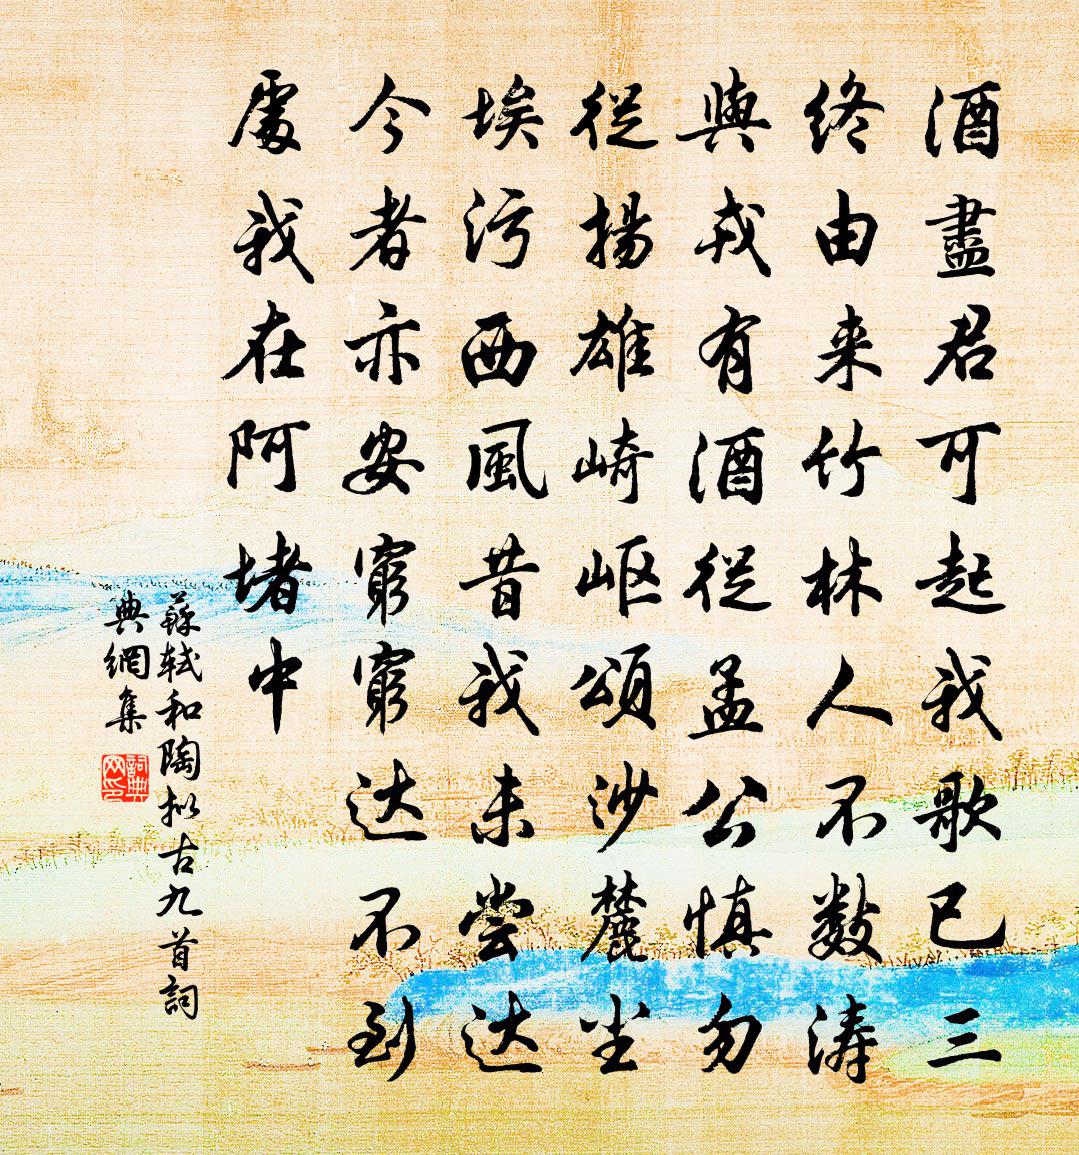 酒盡君可起我歌已三
終由来竹林人不數涛
與戎有酒從孟公慎勿
從揚雄崎岖頌沙麓尘
埃污西風昔我未尝达
今者亦安窮窮达不到
處我在阿堵中
蘇轼和陶拟古九首詞
典網集
詞典
网印